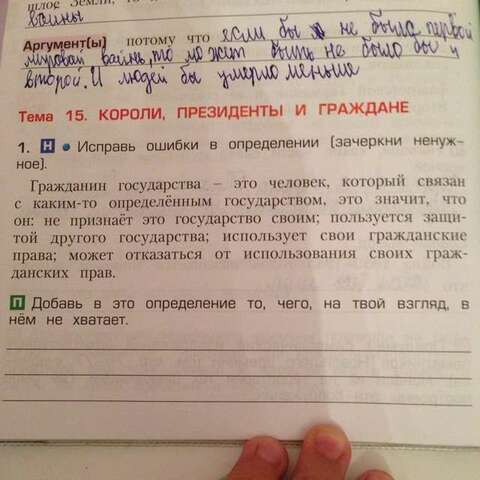 шлое Земли, то
войны
Аргумент(ы) потому что если бы не было первой
мировой войны, то может быть не было бы и
второй. И людей бы умерло меньше
Тема 15. КОРОЛИ, ПРЕЗИДЕНТЫ И ГРАЖДАНЕ
1. Н • Исправь ошибки в определении (зачеркни ненуж-
ное).
Гражданин государства – это человек, который связан
с каким-то определённым государством, это значит, что
он: не признаёт это государство своим; пользуется защи-
той другого государства; использует свои гражданские
права; может отказаться от использования своих граж-
данских прав.
П Добавь в это определение то, чего, на твой взгляд, в
нём не хватает.